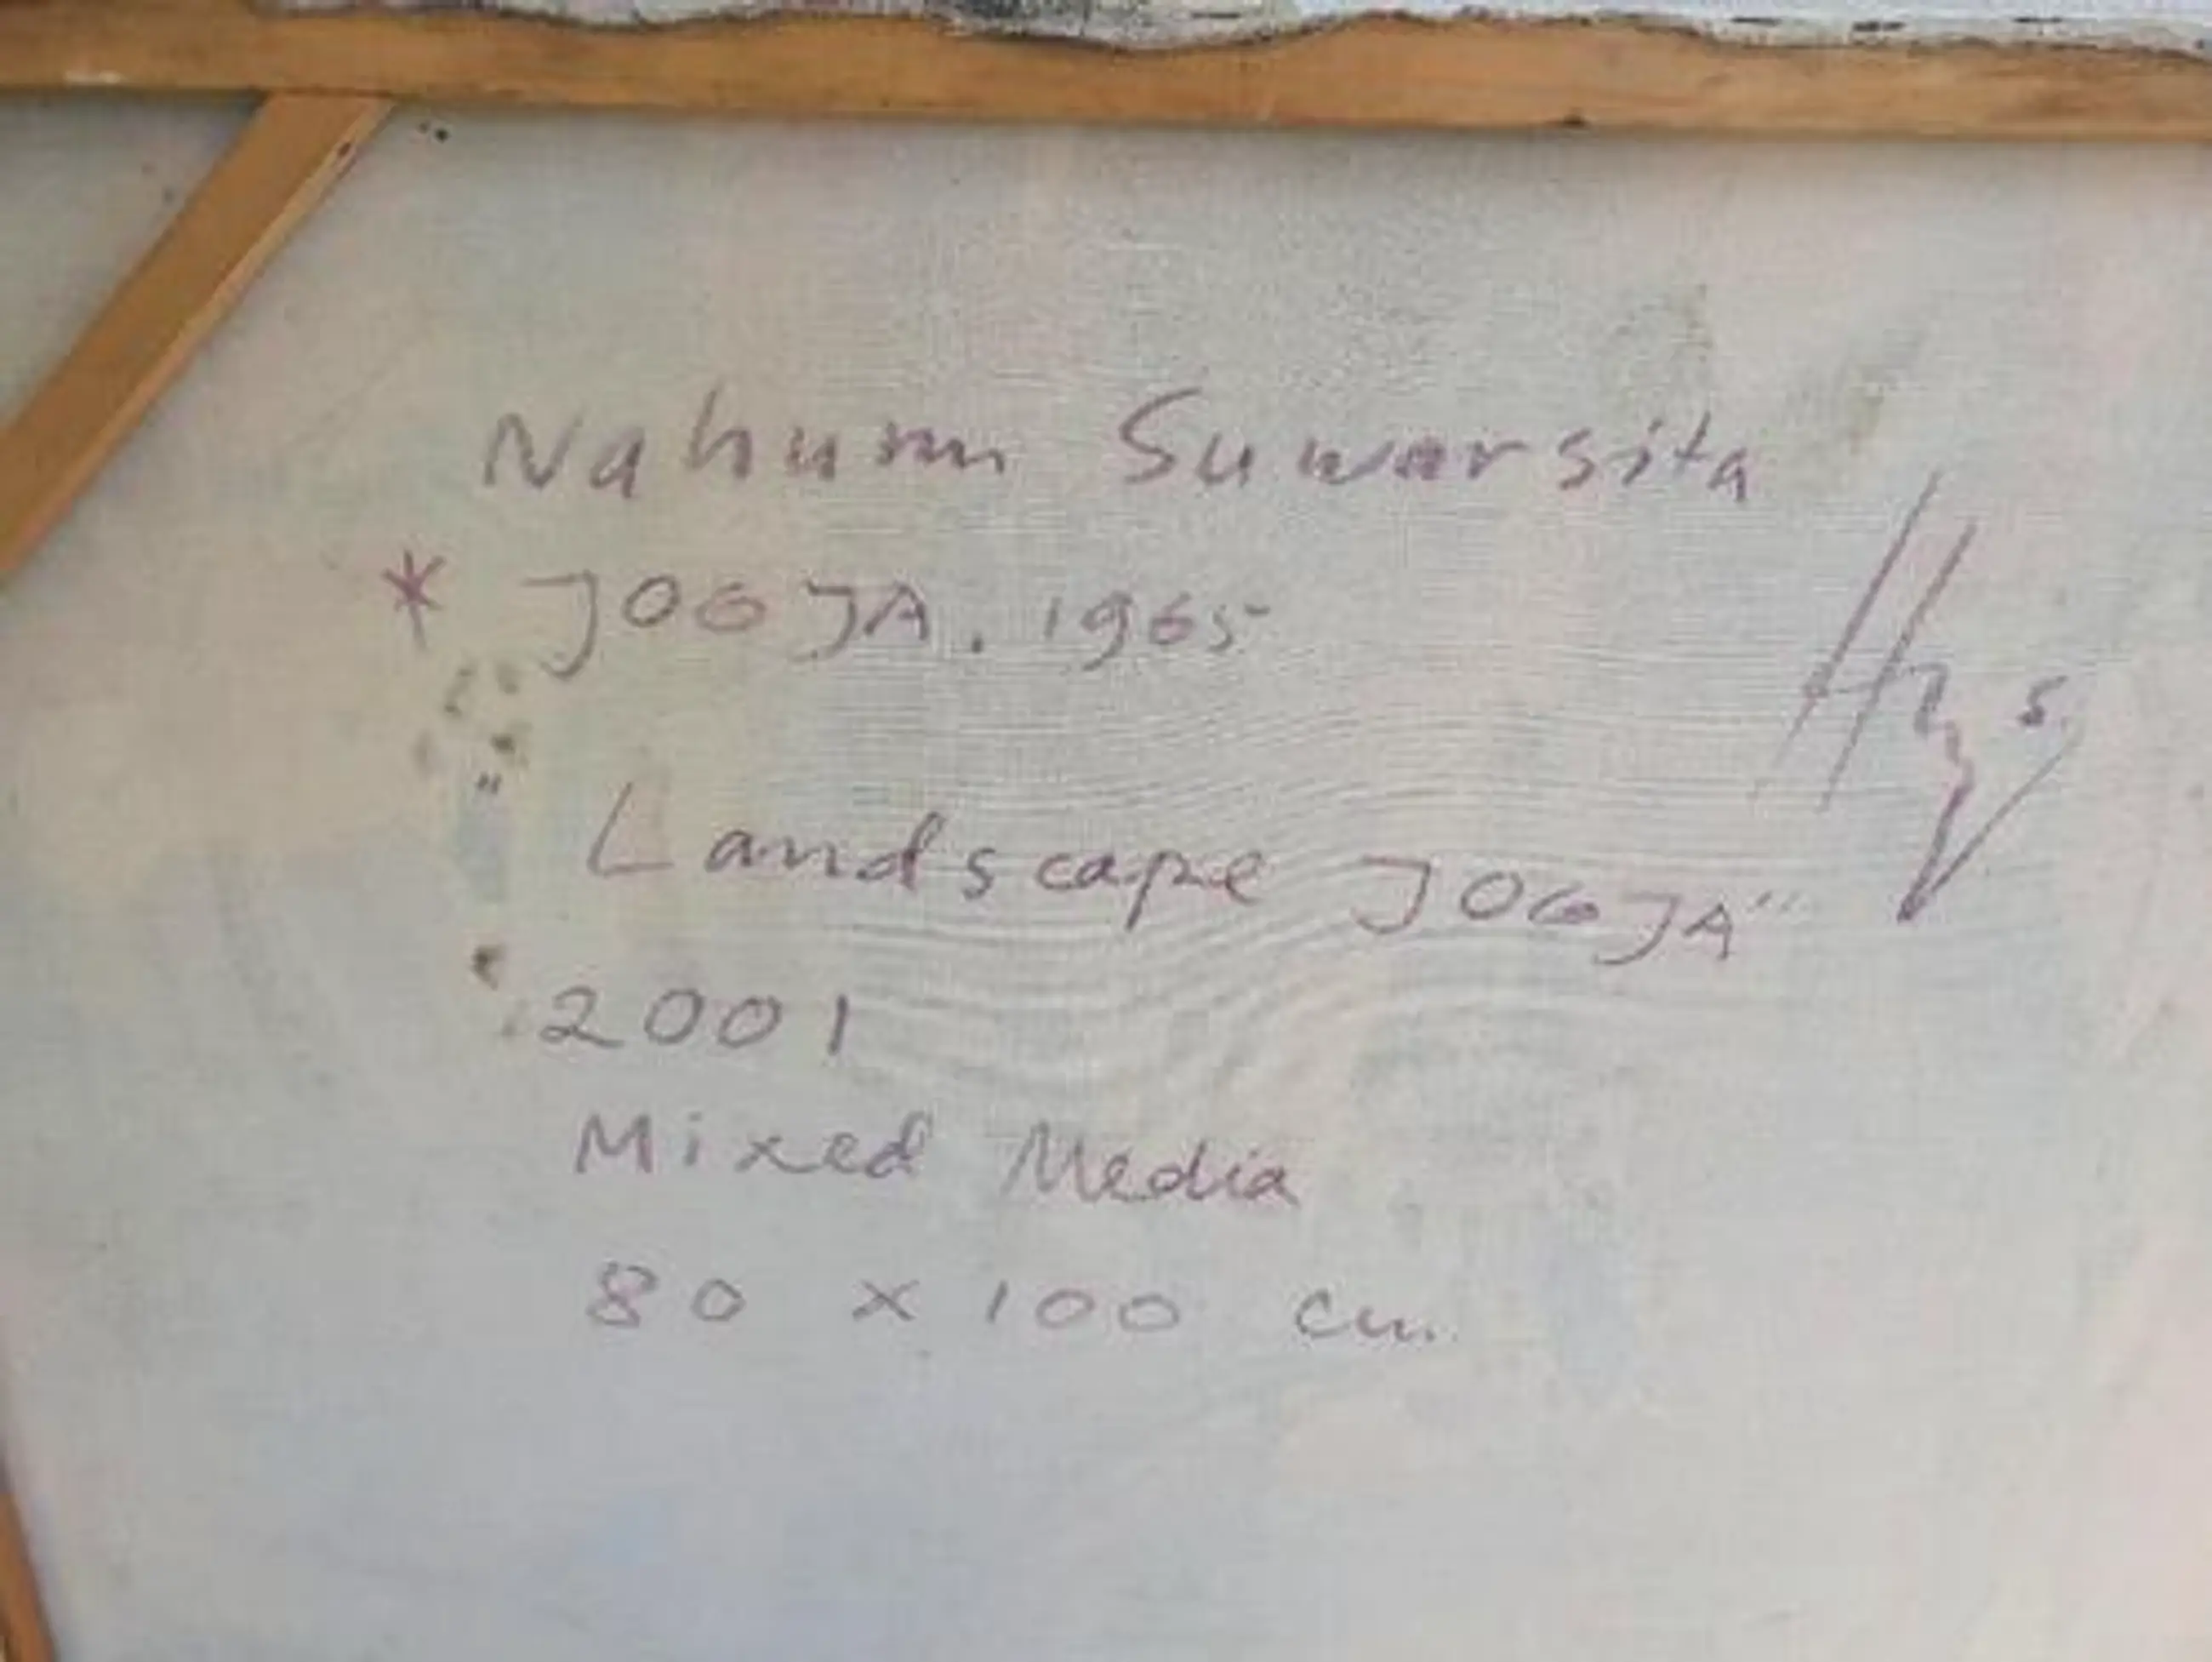 Nahum Suwarsita
* JOGJA. 1965
" Landscape JOGJA"
2001
Mixed Media
80 x 100 cm.